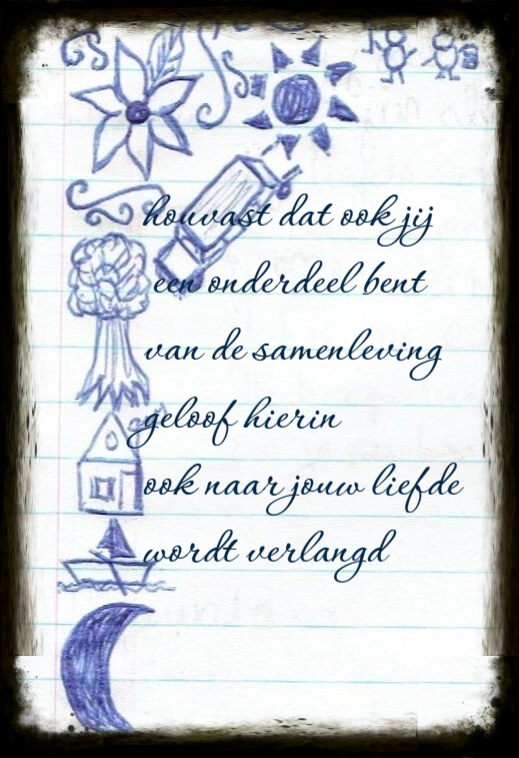 houvast dat ook jij
een onderdeel bent
van de samenleving
geloof hierin
ook naar jouw liefde
wordt verlangd